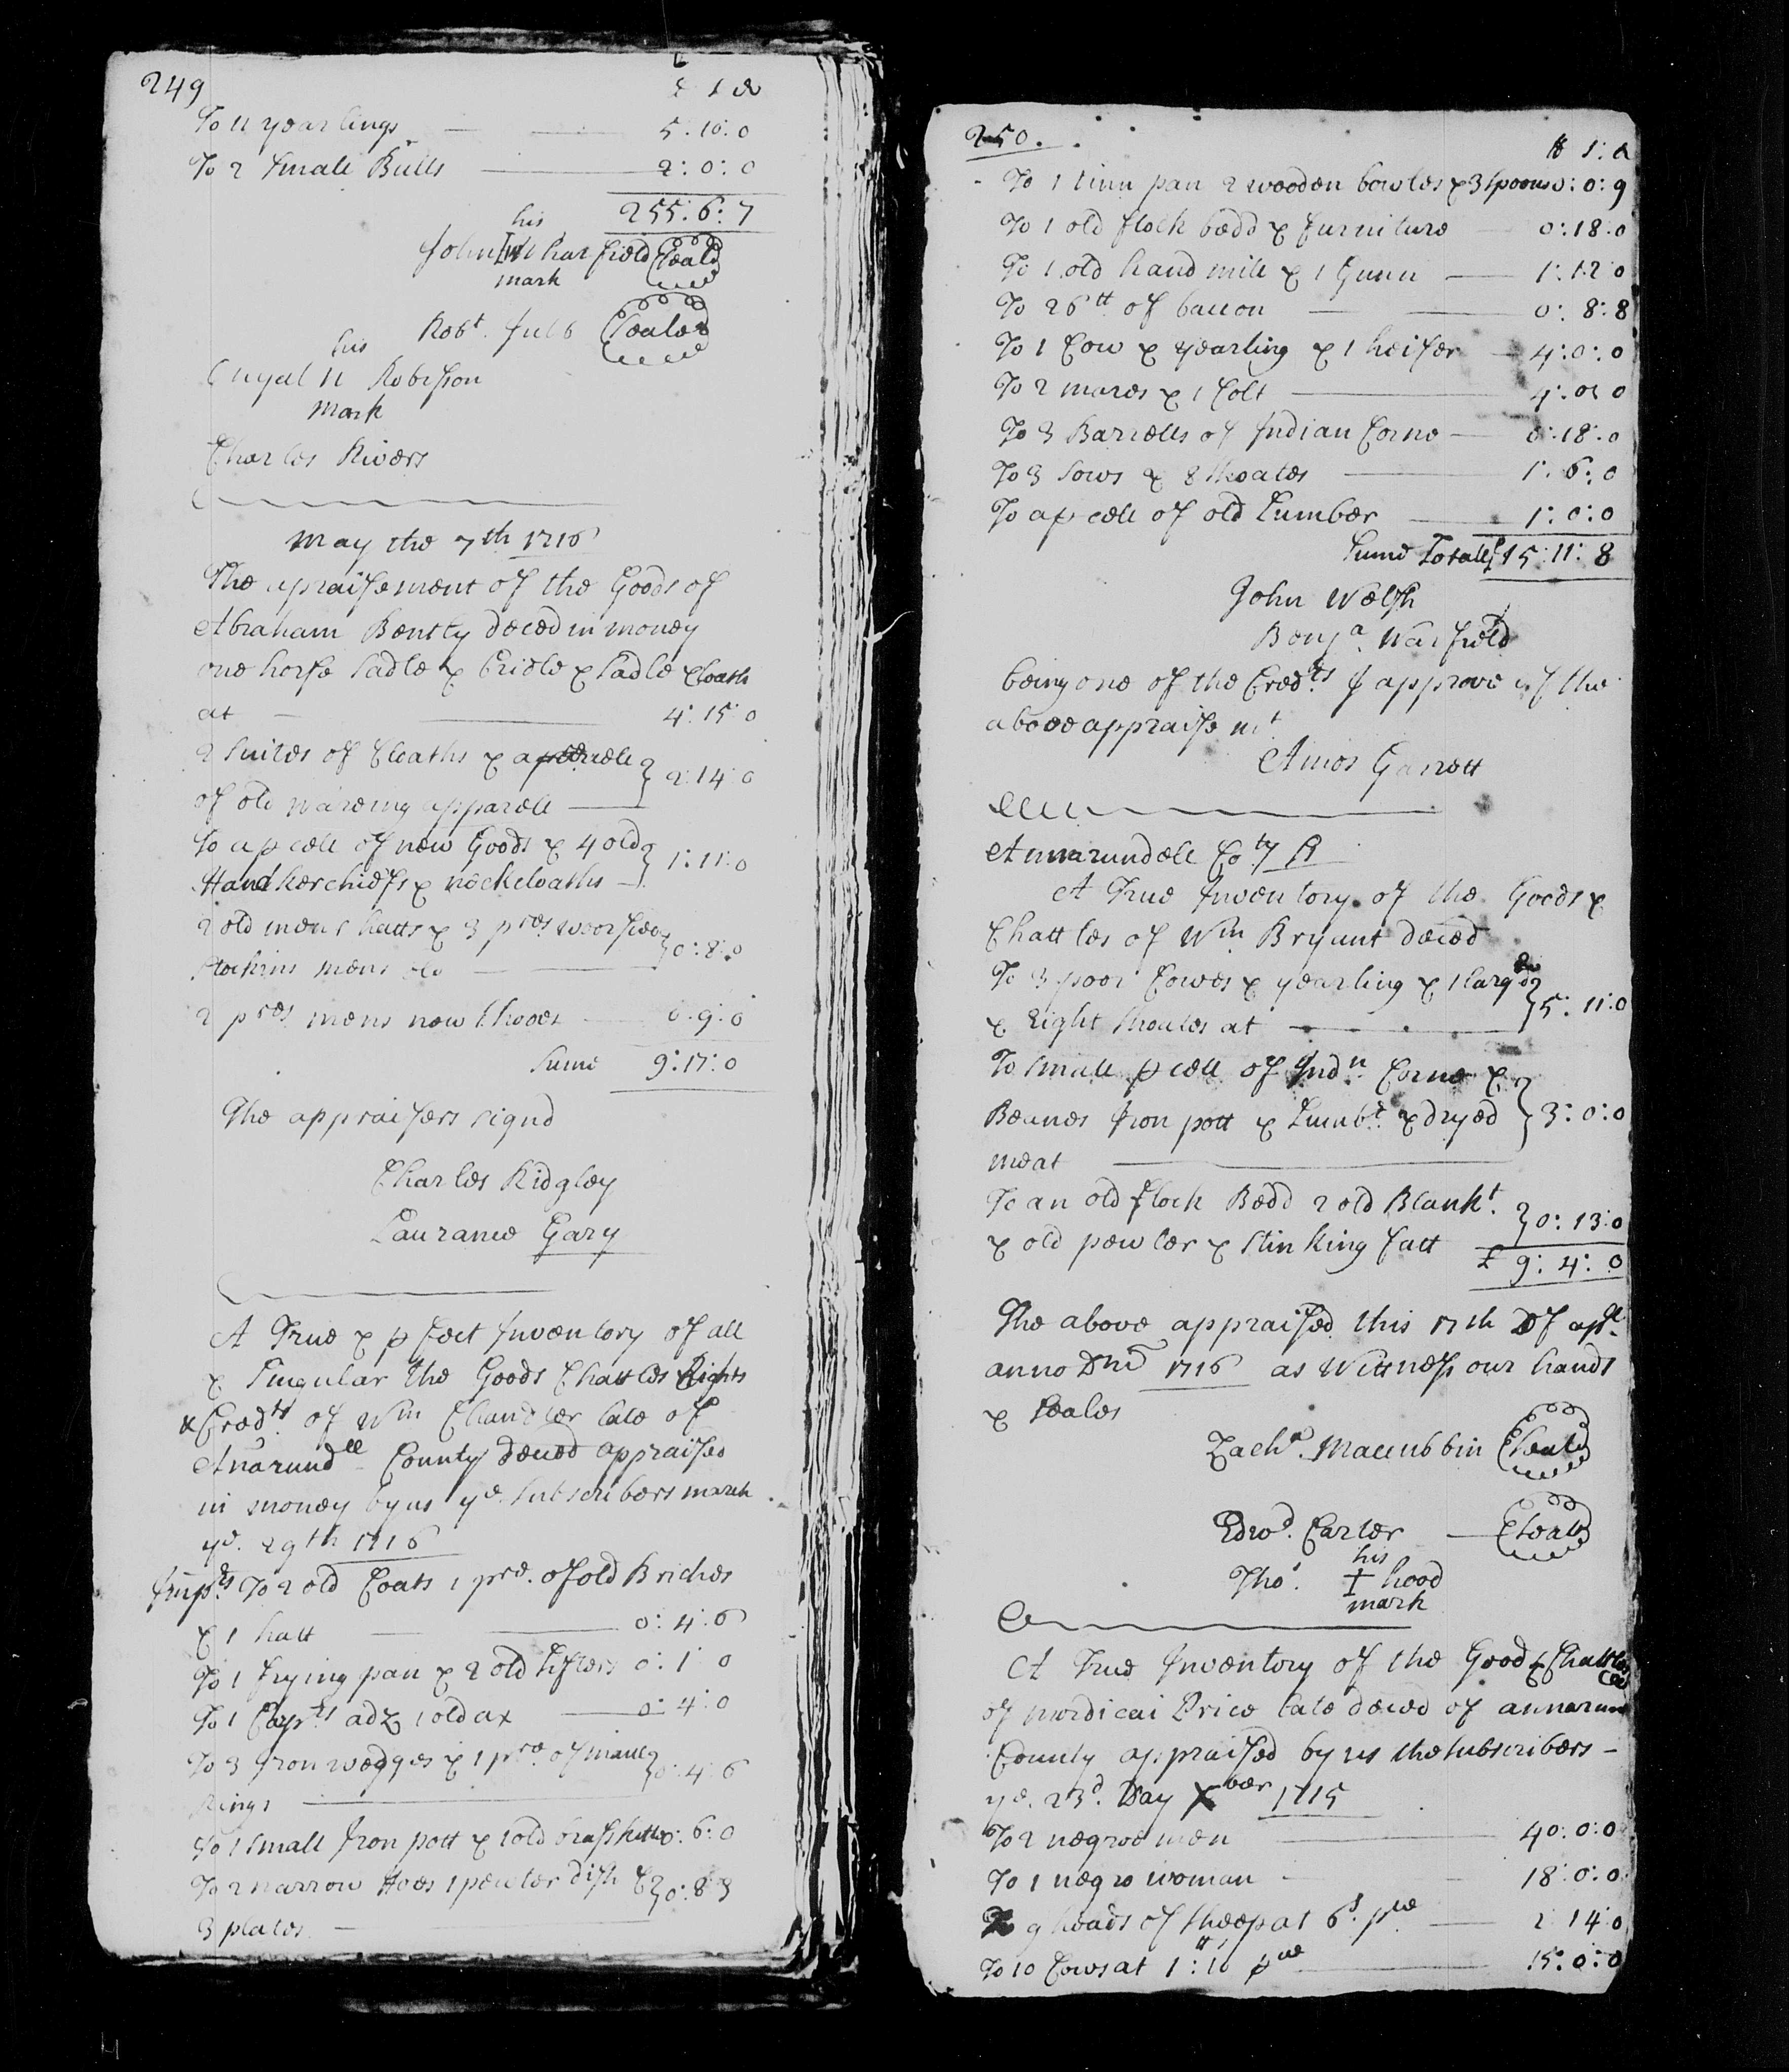 249
£ s d
To 11 yearlings 5:10:0
To 2 smale Bulls 2:0:0
255:6:7
his
John W Wharfield Seald
mark
Robt. Jubb Sealed
his
11 Robisson
mark
Charles Rivers
May the 7th 1716
The apraisement of the Goods of
Abraham Bently deced in money
one horse sadle & bridle & sadle cloath
at 4:15:0
2 suites of cloaths & a pcell
of old wareing apparell 2:14:0
To a pcell of new Goods & 4 old
Handkerchiefs & neckcloaths 1:11:0
2 old mens hatts & 3 pres. woorsted
stockins mens old 0:8:0
2 pres. mens new shooes 0:9:0
Sume 9:17:0
The appraisers signd
Charles Ridgley
Laurance Gary
A True & pfect Inventory of all
& Singular the Goods Chattles Rights
& Credts of Wm Chandler late of
Anarundll County deced appraised
in money by us ye. subscribers march
ye. 29th 1716
Imps To 2 old Coats 1 pre. of old Briches
& 1 hatt 0:4:6
To 1 frying pan & 2 old sifters 0:1:0
To 1 Carpts adz 1 old ax 0:4:0
To 3 Iron wedges & 1 pre of maule
Rings 0:4:6
To 1 small Iron pott & 1 old brass kettle 0:6:0
To 2 narrow Hoes 1 pewter dish &
3 plates 0:8:3
250.
tt s:d
To 1 tinn pan 2 wooden bowles & 3 spoons 0:0:9
To 1 old flock bedd & furniture 0:18:0
To 1 old hand mill & 1 Gunn 1:12:0
To 26tt of bacon 0:8:8
To 1 Cow & yearling & 1 heifer 4:0:0
To 2 mares & 1 Colt 4:0:0
To 3 Barrells of Indian Corne 0:18:0
To 3 sows & 8 shoates 1:6:0
To a pcell of old Lumber 1:0:0
Sume Totall £15:11:8
John Welsh
Benja. Warfield
being one of the Credts. I approve of the
above appraisemt
Amos Garrett
Annarundell Coty
A True Inventory of the Goods &
Chattles of Wm Bryant deced
To 3 poor Cowes & yearling & 1 large
& Eight shoates at 5:11:0
To smale pcell of Indn. Corne &
Beanes Iron pott & Lumbr. & dryed
meat 3:0:0
To an old flock Bedd 2 old Blankt.
& old pewter & stinking fatt 0:13:0
£ 9:4:0
The above appraised this 17th of apll.
anno Dni 1716 as Wittness our hands
& seales
Zacha. Maccubbin Seald
Edwd. Carter Seald
his
Thos. + hood
mark
A True Inventory of the Good & Chattles
of mordicai Price late deced of annarundell
County appraised by us the subscribers
ye. 23d. Day Xber 1715
To 2 negroe men 40:0:0
To 1 negro woman 18:0:0
To 9 heads of sheep at 6s. pce 2:14:0
To 10 Cows at 1:10 pce 15:0:0